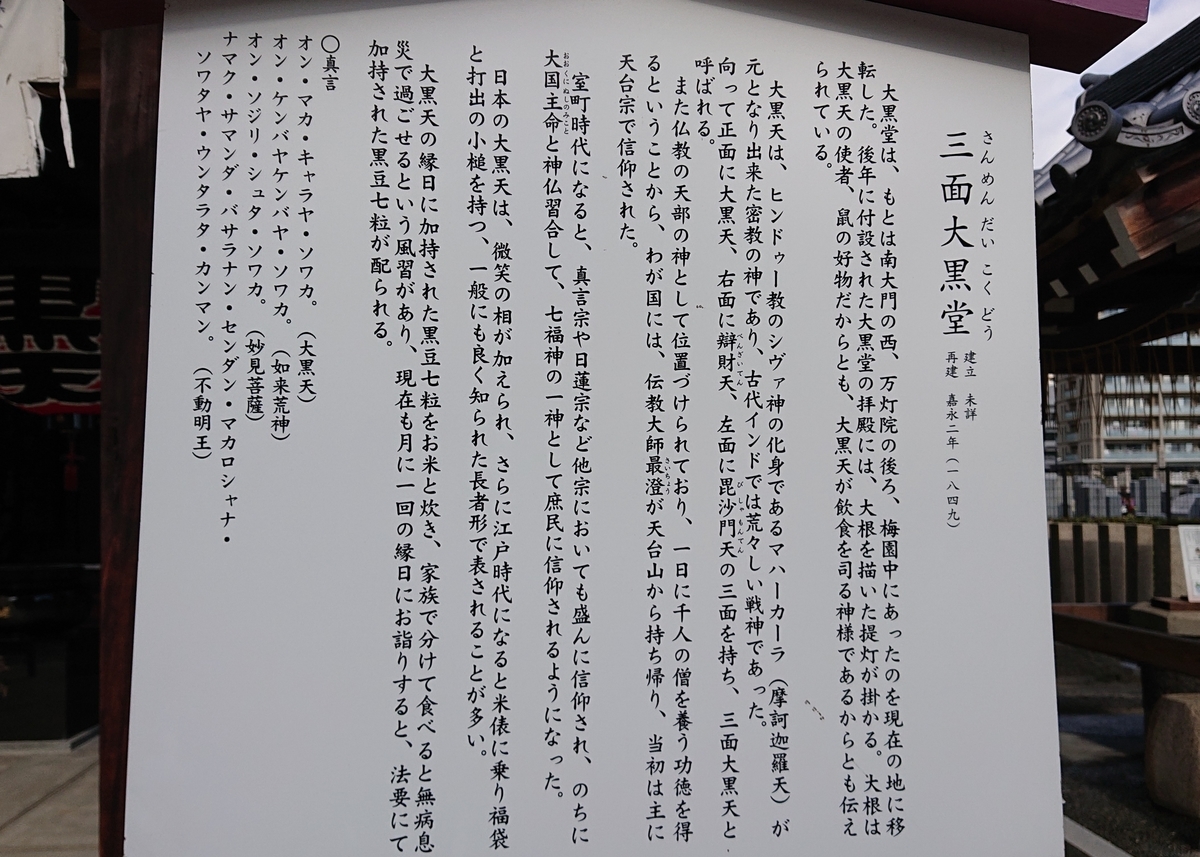 さんめん だい こく どう
三面大黒堂
建立 未詳
再建 嘉永二年（一八四九）
大黒堂は、もとは南大門の西、万灯院の後ろ、梅園中にあったのを現在の地に移
転した。後年に付設された大黒堂の拝殿には、大根を描いた提灯が掛かる。大根は
大黒天の使者、鼠の好物だからとも、大黒天が飲食を司る神様であるからとも伝え
られている。
大黒天は、ヒンドゥー教のシヴァ神の化身であるマハーカーラ（摩訶迦羅天）が
元となり出来た密教の神であり、古代インドでは荒々しい戦神であった。
向って正面に大黒天、右面に辯財天、左面に毘沙門天の三面を持ち、三面大黒天と
べんざいてん
びしゃもんてん
呼ばれる。
また仏教の天部の神として位置づけられており、一日に千人の僧を養う功徳を得
るということから、わが国には、伝教大師最澄が天台山から持ち帰り、当初は主に
さいちょう
天台宗で信仰された。
室町時代になると、真言宗や日蓮宗など他宗においても盛んに信仰され、のちに
大国主命と神仏習合して、七福神の一神として庶民に信仰されるようになった。
おおくにぬしのみこと
日本の大黒天は、微笑の相が加えられ、さらに江戸時代になると米俵に乗り福袋
と打出の小槌を持つ、一般にも良く知られた長者形で表されることが多い。
大黒天の縁日に加持された黒豆七粒をお米と炊き、家族で分けて食べると無病息
災で過ごせるという風習があり、現在も月に一回の縁日にお詣りすると、法要にて
加持された黒豆七粒が配られる。
〇真言
オン・マカ・キャラヤ・ソワカ。（大黒天）
オン・ケンバヤケンバヤ・ソワカ。（如来荒神）
オン・ソジリ・シュタ・ソワカ。（妙見菩薩）
ナマク・サマンダ・バサラナン・センダン・マカロシャナ・
ソワタヤ・ウンタラタ・カンマン。（不動明王）